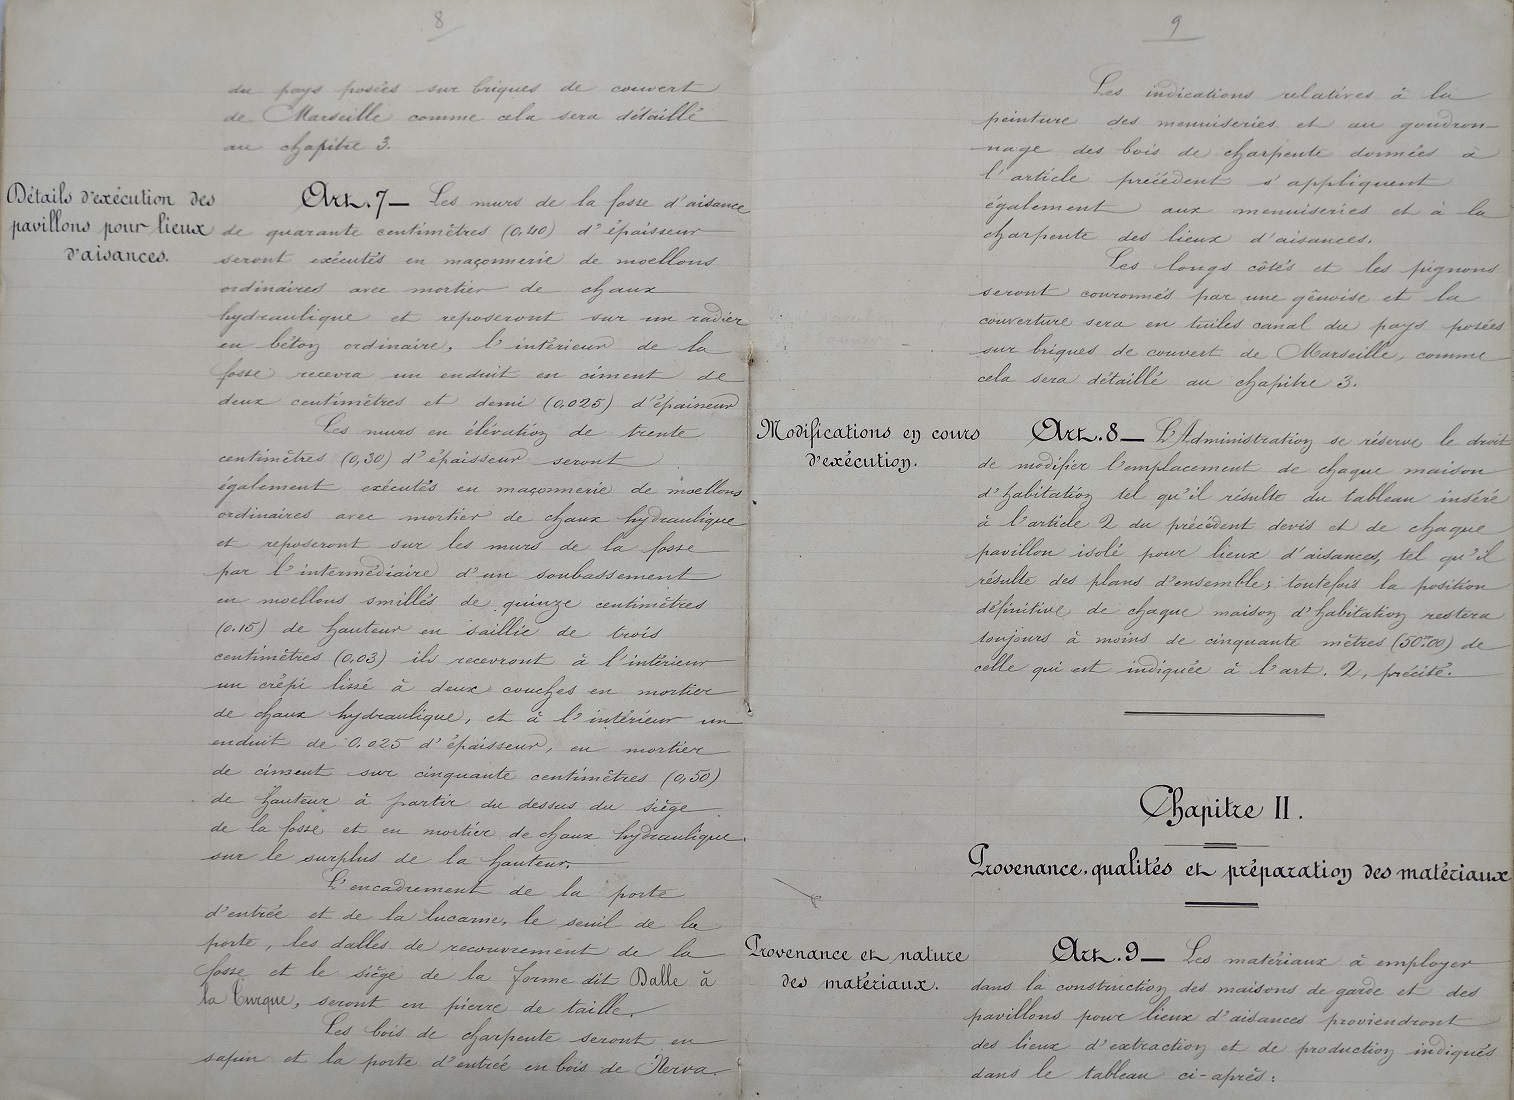 8
du pays posées sur briques de couvert
de Marseille comme cela sera détaillé
au chapitre 3.
Détails d'exécution des
pavillons pour lieux
d'aisances.
Art. 7 — Les murs de la fosse d'aisance
de quarante centimètres (0,40) d'épaisseur
seront exécutés en maçonnerie de moellons
ordinaires avec mortier de chaux
hydraulique et reposeront sur un radier
en béton ordinaire, l'intérieur de la
fosse recevra un enduit en ciment de
deux centimètres et demi (0,025) d'épaisseur
Les murs en élévation de trente
centimètres (0,30) d'épaisseur seront
également exécutés en maçonnerie de moellons
ordinaires avec mortier de chaux hydraulique
et reposeront sur les murs de la fosse
par l'intermédiaire d'un soubassement
en moellons smillés de quinze centimètres
(0.15) de hauteur en saillie de trois
centimètres (0,03) ils recevront à l'intérieur
un crêpi lissé à deux couches en mortier
de chaux hydraulique, et à l'intérieur un
enduit de 0.025 d'épaisseur, en mortier
de ciment sur cinquante centimètres (0,50)
de hauteur à partir du dessus du siège
de la fosse et en mortier de chaux hydraulique
sur le surplus de la hauteur.
L'encadrement de la porte
d'entrée et de la lucarne, le seuil de la
porte, les dalles de recouvrement de la
fosse et le siège de la forme dit Dalle à
la Turque, seront en pierre de taille.
Les bois de charpente seront en
sapin et la porte d'entrée en bois de Nerva.
9
Les indications relatives à la
peinture des menuiseries et au goudron-
nage des bois de charpente données à
l'article précédent s'appliquent
également aux menuiseries et à la
charpente des lieux d'aisances.
Les longs côtés et les pignons
seront couronnés par une gênoise et la
couverture sera en tuiles canal du pays posées
sur briques de couvert de Marseille, comme
cela sera détaillé au chapitre 3.
Modifications en cours
d'exécution.
Art. 8 — L'Administration se réserve le droit
de modifier l'emplacement de chaque maison
d'habitation tel qu'il résulte du tableau inséré
à l'article 2 du précédent devis et de chaque
pavillon isolé pour lieux d'aisances, tel qu'il
résulte des plans d'ensemble; toutefois la position
définitive de chaque maison d'habitation restera
toujours à moins de cinquante mètres (50.m00) de
celle qui est indiquée à l'art. 2, précité.
Chapitre II.
Provenance, qualités et préparation des matériaux
Provenance et nature
des matériaux.
Art. 9 — Les matériaux à employer
dans la construction des maisons de garde et des
pavillons pour lieux d'aisances proviendront
des lieux d'extraction et de production indiqués
dans le tableau ci-après: